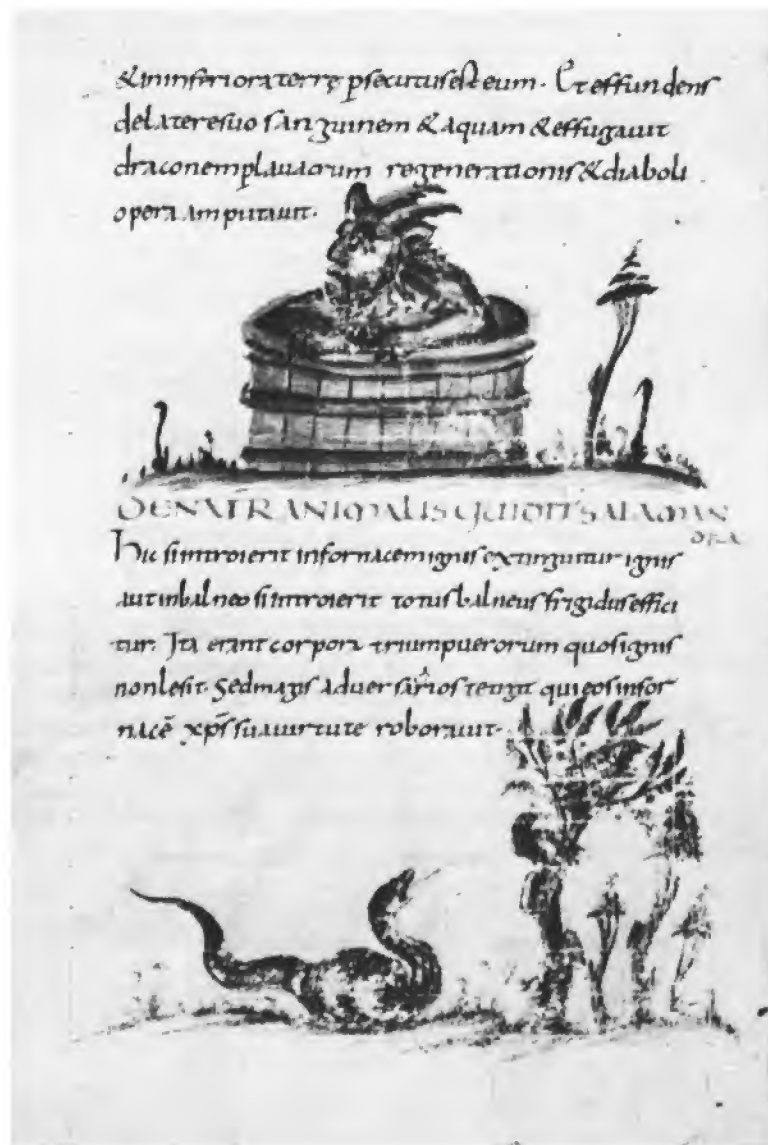 & ininferiora terrę p̄secutus est eum. Et effundens
de latere suo sanguinem & aquam & effugauit
draconem p̄ lauacrum regenerationis & diaboli
opera amputauit.
DE NATR ANIMALIS QUI DIT SALAMAN
DRA
Hic si introierit in fornacem ignis extinguitur ignis
aut in balneo si introierit totus balneus frigidus effici
tur. Ita erant corpora trium puerorum quos ignis
non lesit. Sed magis aduersarios tetigit qui eos in for
nacē xp̄s sua uirtute roborauit.